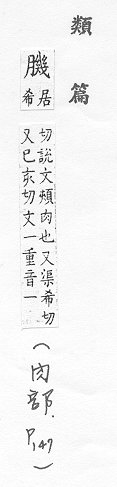 類篇
機居希
切說文頰肉也又渠希切
又巳亥切文一重音一
(肉部.P.147)